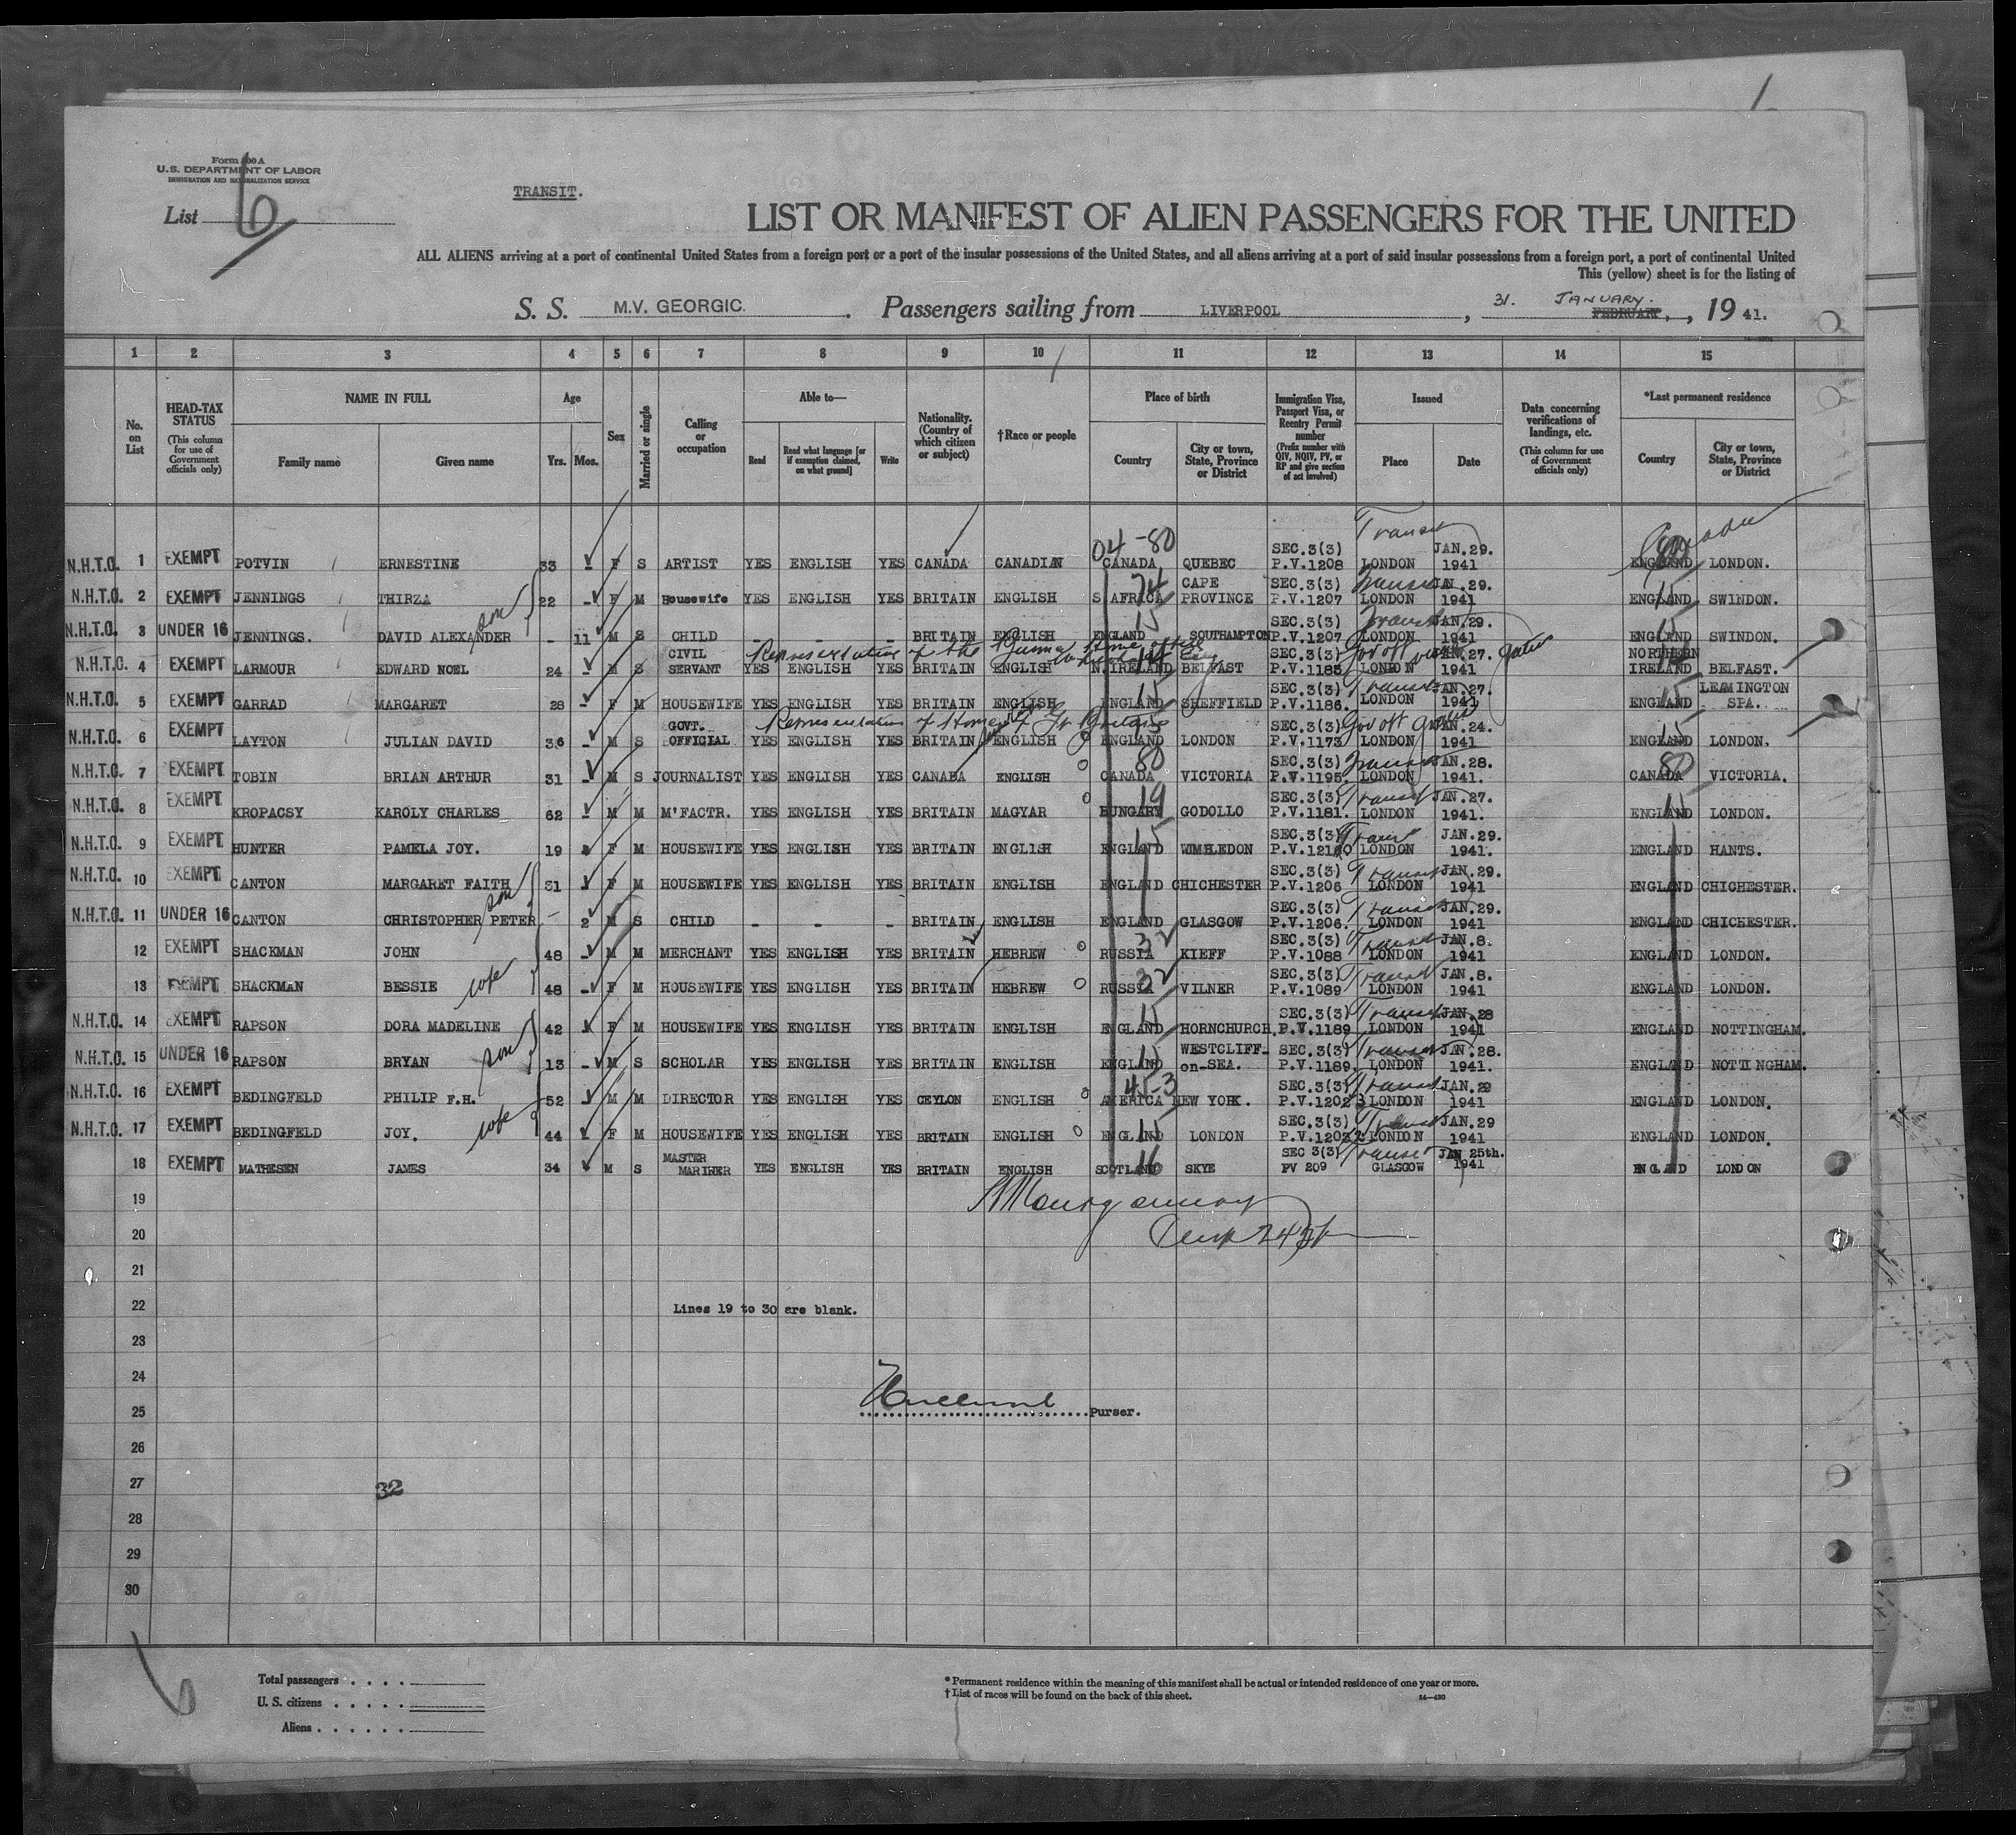 Form 500 A
U.S. DEPARTMENT OF LABOR
IMMIGRATION AND NATURALIZATION SERVICE
List 6
TRANSIT.
LIST OR MANIFEST OF ALIEN PASSENGERS FOR THE UNITED
ALL ALIENS arriving at a port of continental United States from a foreign port or a port of the insular possessions of the United States, and all aliens arriving at a port of said insular possessions from a foreign port, a port of continental United
This (yellow) sheet is for the listing of
S. S. M.V. GEORGIC. Passengers sailing from LIVERPOOL, 31. JANUARY. FEBRUARY, 1941.
1 2 3 4 5 6 7 8 9 10 11 12 13 14 15
No. on List
HEAD-TAX STATUS (This column for use of Government officials only)
NAME IN FULL Family name Given name
Age Yrs. Mos.
Sex
Married or single
Calling or occupation
Able to— Read Read what language [or if exemption claimed, on what ground] Write
Nationality. (Country of which citizen or subject)
†Race or people
Place of birth Country City or town, State, Province or District
Immigration Visa, Passport Visa, or Reentry Permit number (Prefix number with QIV, NQIV, PV, or RP and give section of act involved)
Issued Place Date
Data concerning verifications of landings, etc. (This column for use of Government officials only)
*Last permanent residence Country City or town, State, Province or District
N.H.T.O. 1 EXEMPT POTVIN ERNESTINE 33 - F S ARTIST YES ENGLISH YES CANADA CANADIAN 04-80 CANADA QUEBEC SEC.3(3) P.V.1208 Transit LONDON JAN.29. 1941 Canada ENGLAND LONDON.
N.H.T.O. 2 EXEMPT JENNINGS THIRZA 22 - F M Housewife YES ENGLISH YES BRITAIN ENGLISH 74 S AFRICA CAPE PROVINCE SEC.3(3) P.V.1207 Transit LONDON JAN.29. 1941 15 ENGLAND SWINDON.
N.H.T.O. 3 UNDER 16 JENNINGS. DAVID ALEXANDER son - 11 M S CHILD - - - BRITAIN ENGLISH 15 ENGLAND SOUTHAMPTON SEC.3(3) P.V.1207 Transit LONDON JAN.29. 1941 15 ENGLAND SWINDON.
N.H.T.O. 4 EXEMPT LARMOUR EDWARD NOEL 24 - M S CIVIL SERVANT Representative of the Burma Home office YES ENGLISH YES BRITAIN ENGLISH N.IRELAND BELFAST SEC.3(3) P.V.1185 Gov off LONDON JAN.27. 1941 NORTHERN IRELAND BELFAST.
N.H.T.O. 5 EXEMPT GARRAD MARGARET 28 - F M HOUSEWIFE YES ENGLISH YES BRITAIN ENGLISH 15 ENGLAND SHEFFIELD SEC.3(3) P.V.1186. Transit LONDON JAN.27. 1941 15 ENGLAND LEAMINGTON SPA.
N.H.T.O. 6 EXEMPT LAYTON JULIAN DAVID 36 - M S GOVT. OFFICIAL Representative of Home office Gr Britain YES ENGLISH YES BRITAIN ENGLISH 15 ENGLAND LONDON SEC.3(3) P.V.1173 Gov off LONDON JAN.24. 1941 15 ENGLAND LONDON.
N.H.T.O. 7 EXEMPT TOBIN BRIAN ARTHUR 31 - M S JOURNALIST YES ENGLISH YES CANADA ENGLISH 80 CANADA VICTORIA SEC.3(3) P.V.1195. Transit LONDON JAN.28. 1941. 80 CANADA VICTORIA.
N.H.T.O. 8 EXEMPT KROPACSY KAROLY CHARLES 62 - M M M'FACTR. YES ENGLISH YES BRITAIN MAGYAR 19 HUNGARY GODOLLO SEC.3(3) P.V.1181. Transit LONDON JAN.27. 1941. 15 ENGLAND LONDON.
N.H.T.O. 9 EXEMPT HUNTER PAMELA JOY. 19 F M HOUSEWIFE YES ENGLISH YES BRITAIN ENGLISH 15 ENGLAND WIMBLEDON SEC.3(3) P.V.1210 Transit LONDON JAN.29. 1941. ENGLAND HANTS.
N.H.T.O. 10 EXEMPT CANTON MARGARET FAITH 31 - F M HOUSEWIFE YES ENGLISH YES BRITAIN ENGLISH ENGLAND CHICHESTER SEC.3(3) P.V.1206 Transit LONDON JAN.29. 1941 ENGLAND CHICHESTER.
N.H.T.O. 11 UNDER 16 CANTON CHRISTOPHER PETER son - 2 M S CHILD - - - BRITAIN ENGLISH ENGLAND GLASGOW SEC.3(3) P.V.1206. Transit LONDON JAN.29. 1941 ENGLAND CHICHESTER.
12 EXEMPT SHACKMAN JOHN 48 - M M MERCHANT YES ENGLISH YES BRITAIN HEBREW 32 RUSSIA KIEFF SEC.3(3) P.V.1088 Transit LONDON JAN.8. 1941 ENGLAND LONDON.
13 EXEMPT SHACKMAN BESSIE wife 48 - F M HOUSEWIFE YES ENGLISH YES BRITAIN HEBREW 32 RUSSIA VILNER SEC.3(3) P.V.1089 Transit LONDON JAN.8. 1941 ENGLAND LONDON.
N.H.T.O. 14 EXEMPT RAPSON DORA MADELINE 42 F M HOUSEWIFE YES ENGLISH YES BRITAIN ENGLISH 15 ENGLAND HORNCHURCH. SEC.3(3) P.V.1189 Transit LONDON JAN.28 1941 ENGLAND NOTTINGHAM.
N.H.T.O. 15 UNDER 16 RAPSON BRYAN son 13 - M S SCHOLAR YES ENGLISH YES BRITAIN ENGLISH 15 ENGLAND WESTCLIFF-on-SEA. SEC.3(3) P.V.1189. Transit LONDON JAN.28. 1941. ENGLAND NOTTINGHAM.
N.H.T.O. 16 EXEMPT BEDINGFELD PHILIP F.H. 52 M M DIRECTOR YES ENGLISH YES CEYLON ENGLISH 45-3 AMERICA NEW YORK. SEC.3(3) P.V.1203 Transit LONDON JAN.29 1941 ENGLAND LONDON.
N.H.T.O. 17 EXEMPT BEDINGFELD JOY. wife 44 F M HOUSEWIFE YES ENGLISH YES BRITAIN ENGLISH 15 ENGLAND LONDON SEC.3(3) P.V.1202 Transit LONDON JAN.29 1941 ENGLAND LONDON.
18 EXEMPT MATHESEN JAMES 34 M S MASTER MARINER YES ENGLISH YES BRITAIN ENGLISH 16 SCOTLAND SKYE SEC 3(3) PV 209 Transit GLASGOW JAN 25th. 1941 ENGLAND LONDON
19
20
21
22 Lines 19 to 30 are blank.
23
24
25 Purser.
26
27 32
28
29
30
6
Total passengers
U. S. citizens
Aliens
* Permanent residence within the meaning of this manifest shall be actual or intended residence of one year or more.
† List of races will be found on the back of this sheet.
14—430